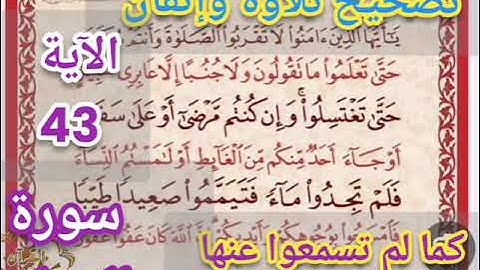 تصحيح تلاوة وإتقان
يَٰٓأَيُّهَا ٱلَّذِينَ ءَامَنُوا۟ لَا تَقْرَبُوا۟ ٱلصَّلَوٰةَ وَأَنتُمْ
حَتَّىٰ تَعْلَمُوا۟ مَا تَقُولُونَ وَلَا جُنُبًا إِلَّا عَابِرِى
حَتَّىٰ تَغْتَسِلُوا۟ۚ وَإِن كُنتُم مَّرْضَىٰٓ أَوْ عَلَىٰ
أَوْ جَآءَ أَحَدٌ مِّنكُم مِّنَ ٱلْغَآئِطِ أَوْ لَٰمَسْتُمُ ٱلنِّسَآءَ
فَلَمْ تَجِدُوا۟ مَآءً فَتَيَمَّمُوا۟ صَعِيدًا طَيِّبًا
بِوُجُوهِكُمْ وَأَيْدِيكُمْ ٱللَّهَ كَانَ عَفُوًّا غَفُورًا
الآية
43
سورة
كما لم تسمعوا عنها